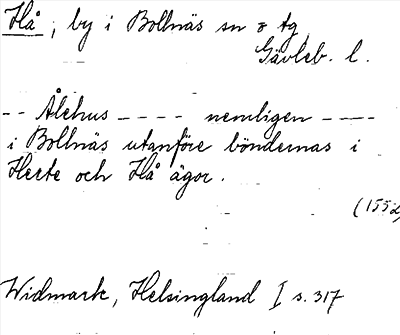 Hå, by i Bollnäs sn o tg,
Gävleb. l.
-- Ålehus ---- nemligen ----
i Bollnäs utanföre böndernas i
Herte och Hå ägor.
(1552)
Widmark, Helsingland I s. 317